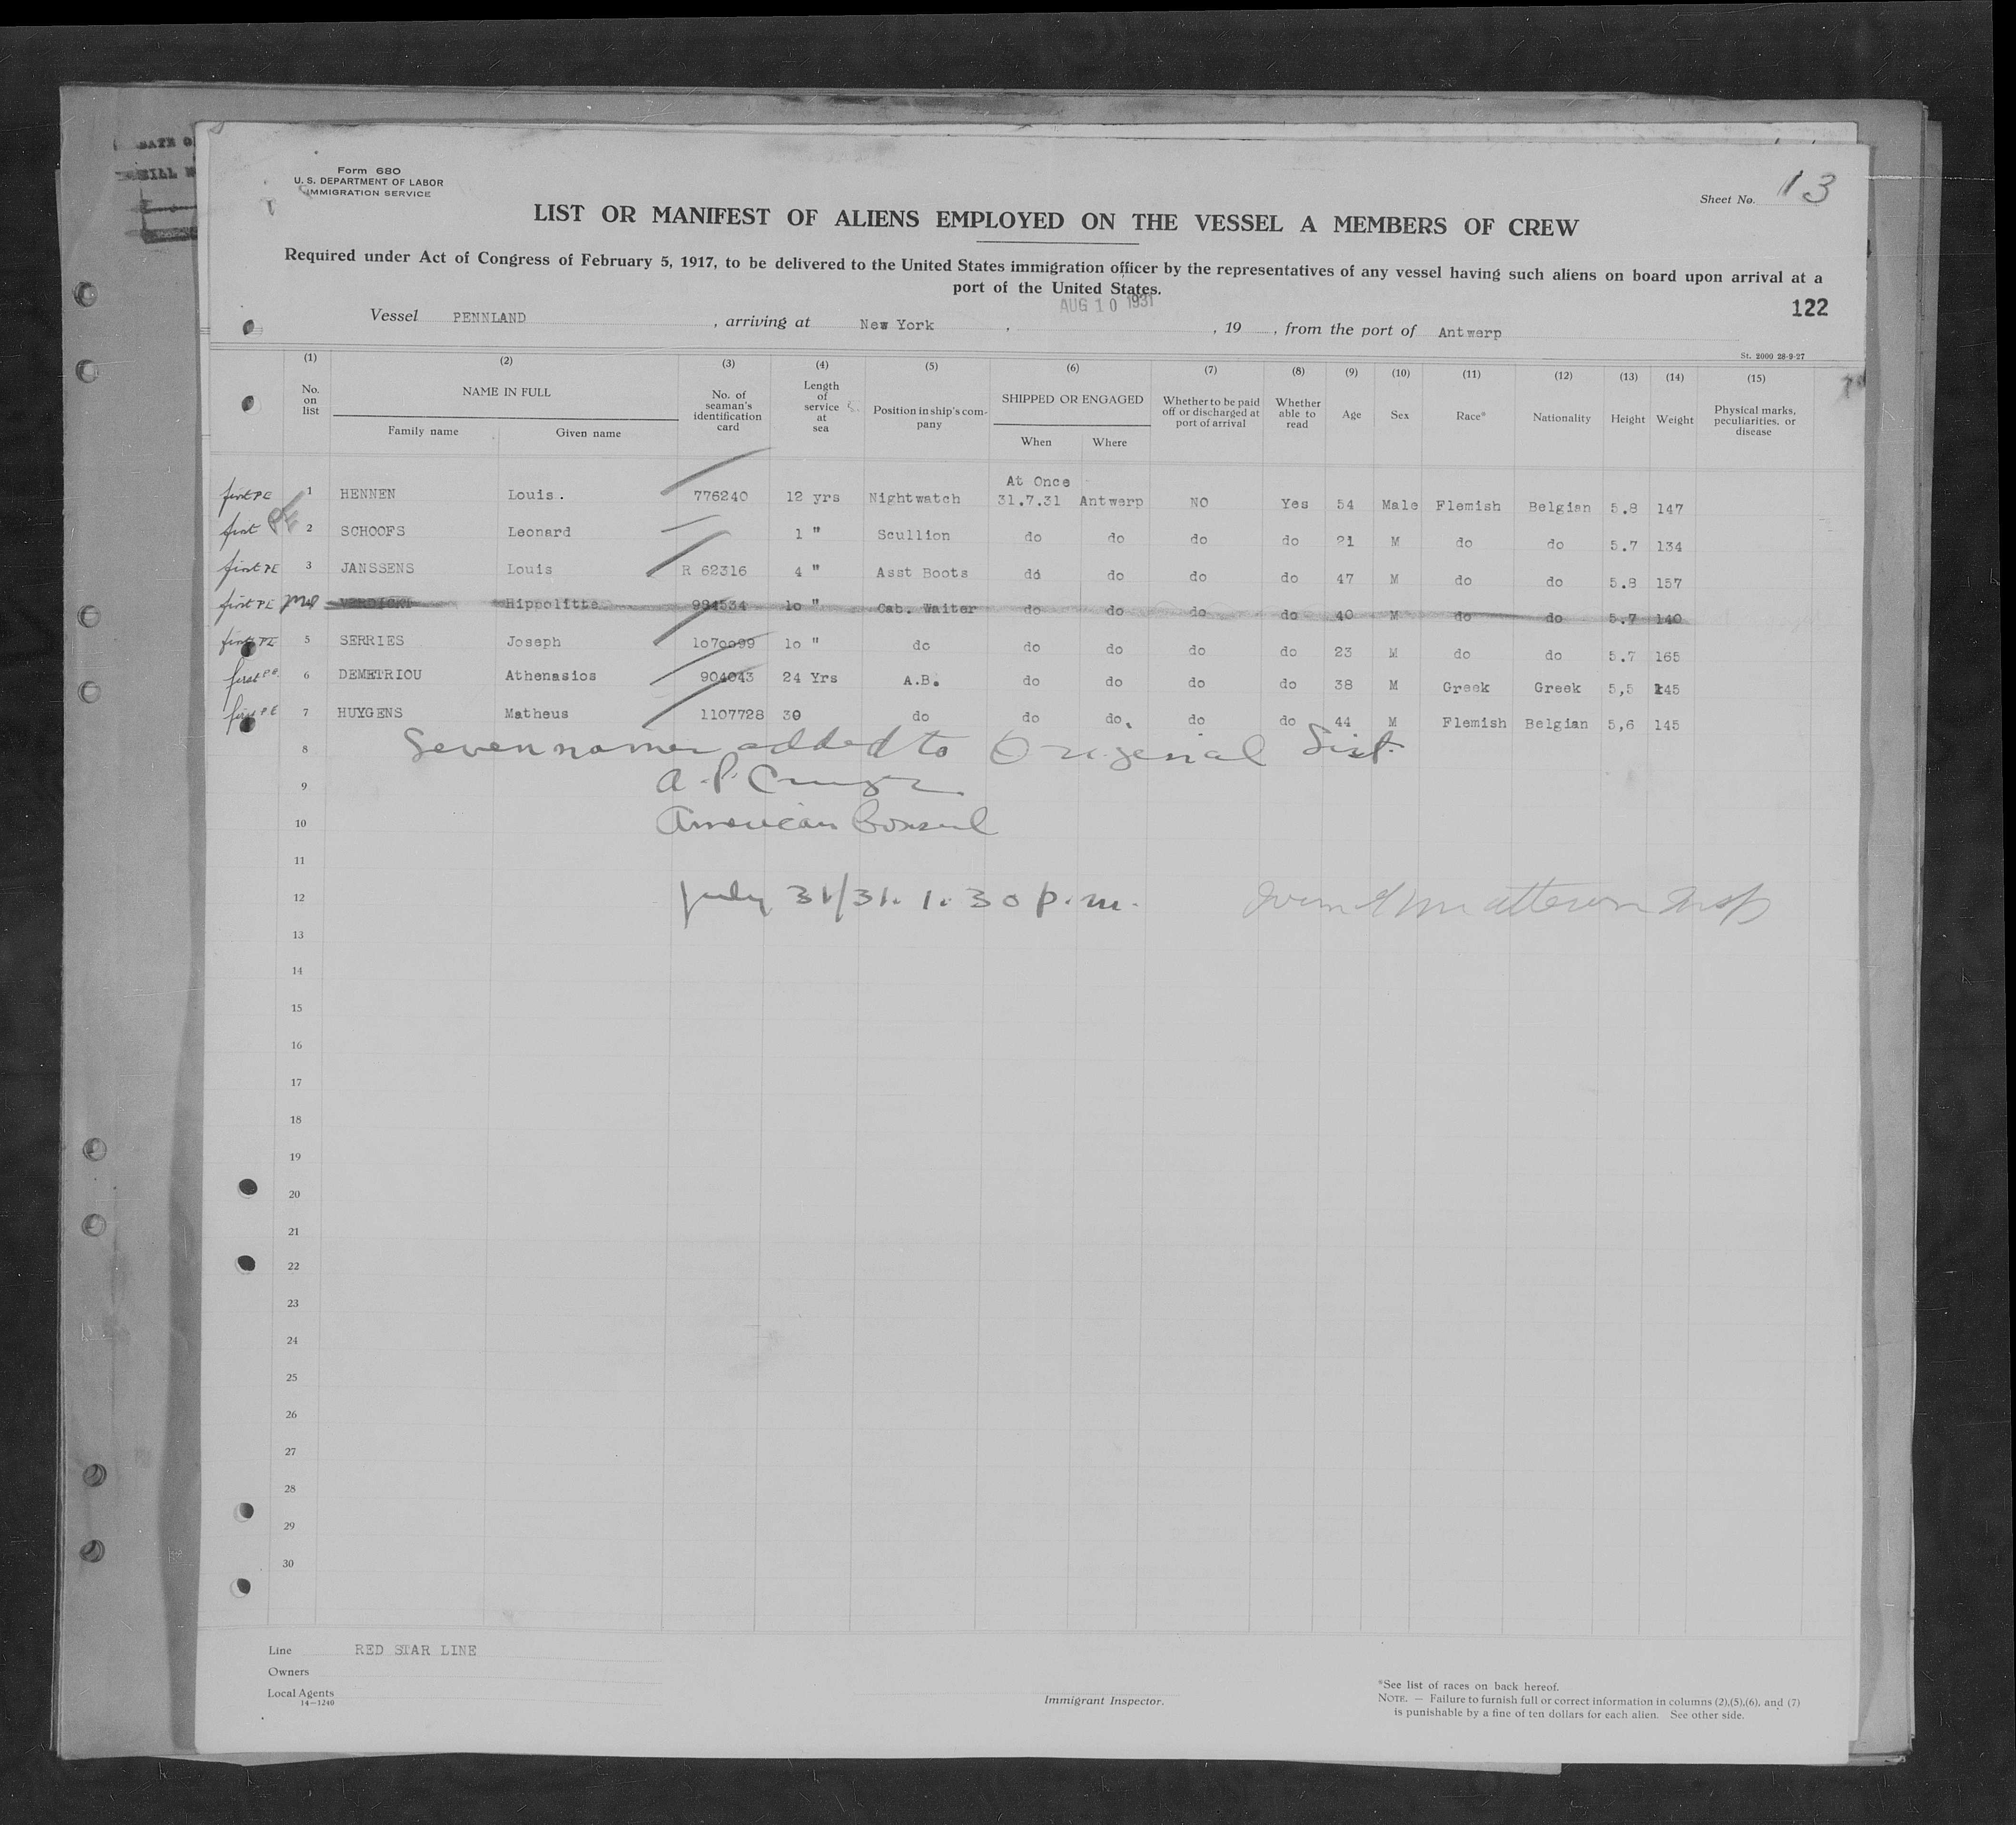 Form 680
U. S. DEPARTMENT OF LABOR
IMMIGRATION SERVICE
Sheet No. 13
LIST OR MANIFEST OF ALIENS EMPLOYED ON THE VESSEL A MEMBERS OF CREW
Required under Act of Congress of February 5, 1917, to be delivered to the United States immigration officer by the representatives of any vessel having such aliens on board upon arrival at a
port of the United States.
AUG 10 1931
122
Vessel PENNLAND , arriving at New York , , 19 , from the port of Antwerp
St. 2000 28-9-27
(1) (2) (3) (4) (5) (6) (7) (8) (9) (10) (11) (12) (13) (14) (15)
No. on list NAME IN FULL Family name Given name No. of seaman's identification card Length of service at sea Position in ship's company SHIPPED OR ENGAGED When Where Whether to be paid off or discharged at port of arrival Whether able to read Age Sex Race* Nationality Height Weight Physical marks, peculiarities. or disease
At Once
first PE 1 HENNEN Louis. 776240 12 yrs Nightwatch 31.7.31 Antwerp NO Yes 54 Male Flemish Belgian 5.8 147
first PE 2 SCHOOFS Leonard 1 " Scullion do do do do 21 M do do 5.7 134
first PE 3 JANSSENS Louis R 62316 4 " Asst Boots do do do do 47 M do do 5.8 157
first PE Hippolitte 994534 10 " Cab. Waiter do do do do 40 M do do 5.7 140
first PE 5 SERRIES Joseph 1070099 10 " do do do do do 23 M do do 5.7 165
first PE 6 DEMETRIOU Athenasios 904043 24 Yrs A.B. do do do do 38 M Greek Greek 5,5 145
first PE 7 HUYGENS Matheus 1107728 30 do do do. do do 44 M Flemish Belgian 5,6 145
8 Seven names added to Original List.
9 A. P. Cruger
10 American Consul
11
12 July 31/31. 1.30 p.m.
13
14
15
16
17
18
19
20
21
22
23
24
25
26
27
28
29
30
Line RED STAR LINE
Owners
Local Agents
14—1240
Immigrant Inspector.
*See list of races on back hereof.
NOTE. — Failure to furnish full or correct information in columns (2),(5),(6), and (7)
is punishable by a fine of ten dollars for each alien. See other side.